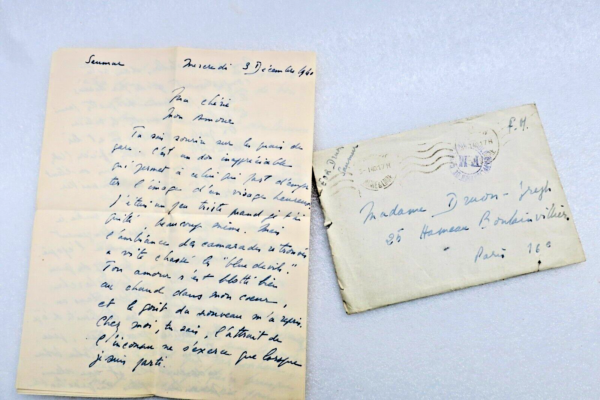 Saumur Mercredi 3 Décembre 1940
Ma chérie
Mon amour
Ton sourire sur le quai de
gare. C'est un don inappréciable
qui permet à celui qui part d'empor-
ter l'image d'un visage heureux.
J'étais un peu triste quand je t'ai
quitté beaucoup même. Mais
l'ambiance des camarades retrouvés
a vite chassé les "blue devils".
Ton amour s'est blotti bien
au chaud dans mon coeur,
et le goût du nouveau m'a repris.
Chez moi, tu sais, l'attrait de
l'inconnu ne s'exerce que lorsque
je suis parti.
F.M.
Saumur
Madame Druon
26 Hameau Boulainvilliers
Paris 16e